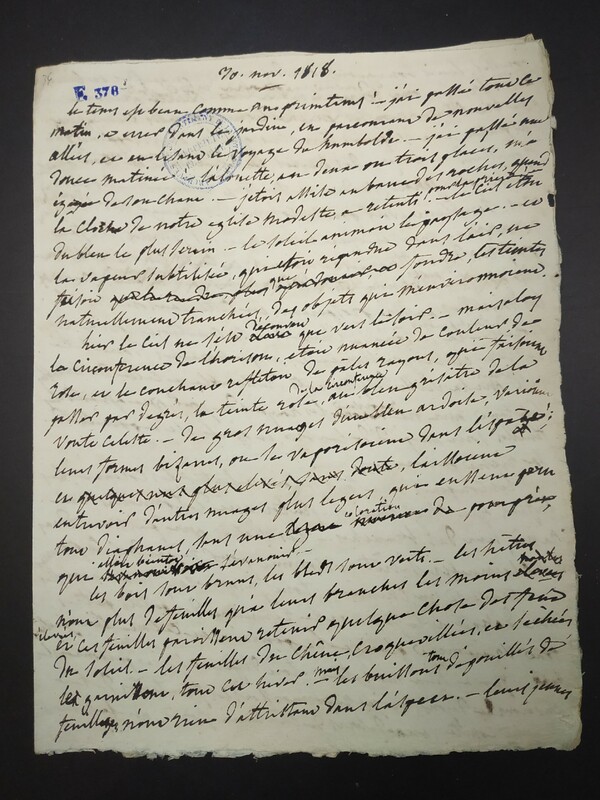 30. nov. 1818.
E 378
le tems est beau comme au printems! — j'ai passé toute la
matin, a errer dans le jardin, en parcourant de nouvelles
allées, et en lisant le voyage de humboldt. — j'ai passé une
douce matinée — l'alouette, au dessus ou trois places, m'a
égayé de son chant. — j'etois assise au banc des roches, quand
la cloche de notre eglise modeste, a retenti
du bleu le plus serein. — le soleil animoit le paysage. — et
la vapeur subtilisée, qui etoit repandue dans l'air, ne
faisoit que fondre, les teintes
naturellement tranchées, des objets qui m'environnoient.
hier le ciel ne s'est decouvert que vers le soir. — mais alors
la circonférence de l'horison, etoit nuancée de couleur de
rose, et le couchant reflettoit de pâles rayons, qui faisoient
passer par degrés, la teinte rose de la circonférence, au bleu grisâtre de la
voute celeste. — de gros nuages d'un bleu ardoise, varioient
leurs formes bizarres, ou se vaporisoient dans l'espace;
et laissoient
entrevoir d'autres nuages plus legers, qui eussent paru
tout diaphanes, sans une coloration de pourpre,
qui alloit bientot s'evanouir. —
les bois sont bruns, les bleds sont verts. — les hêtres
n'ont plus de feuilles qu'à leurs branches les moins élevées
et ces feuilles paroissent retenir quelque chose des feux
du soleil. — les feuilles du chêne, croquevillées, et séchées
le garniront, tout cet hiver. mais les buissons tous dépouillés de
feuillages n'ont rien d'attristant dans l'aspect. — leurs jeunes